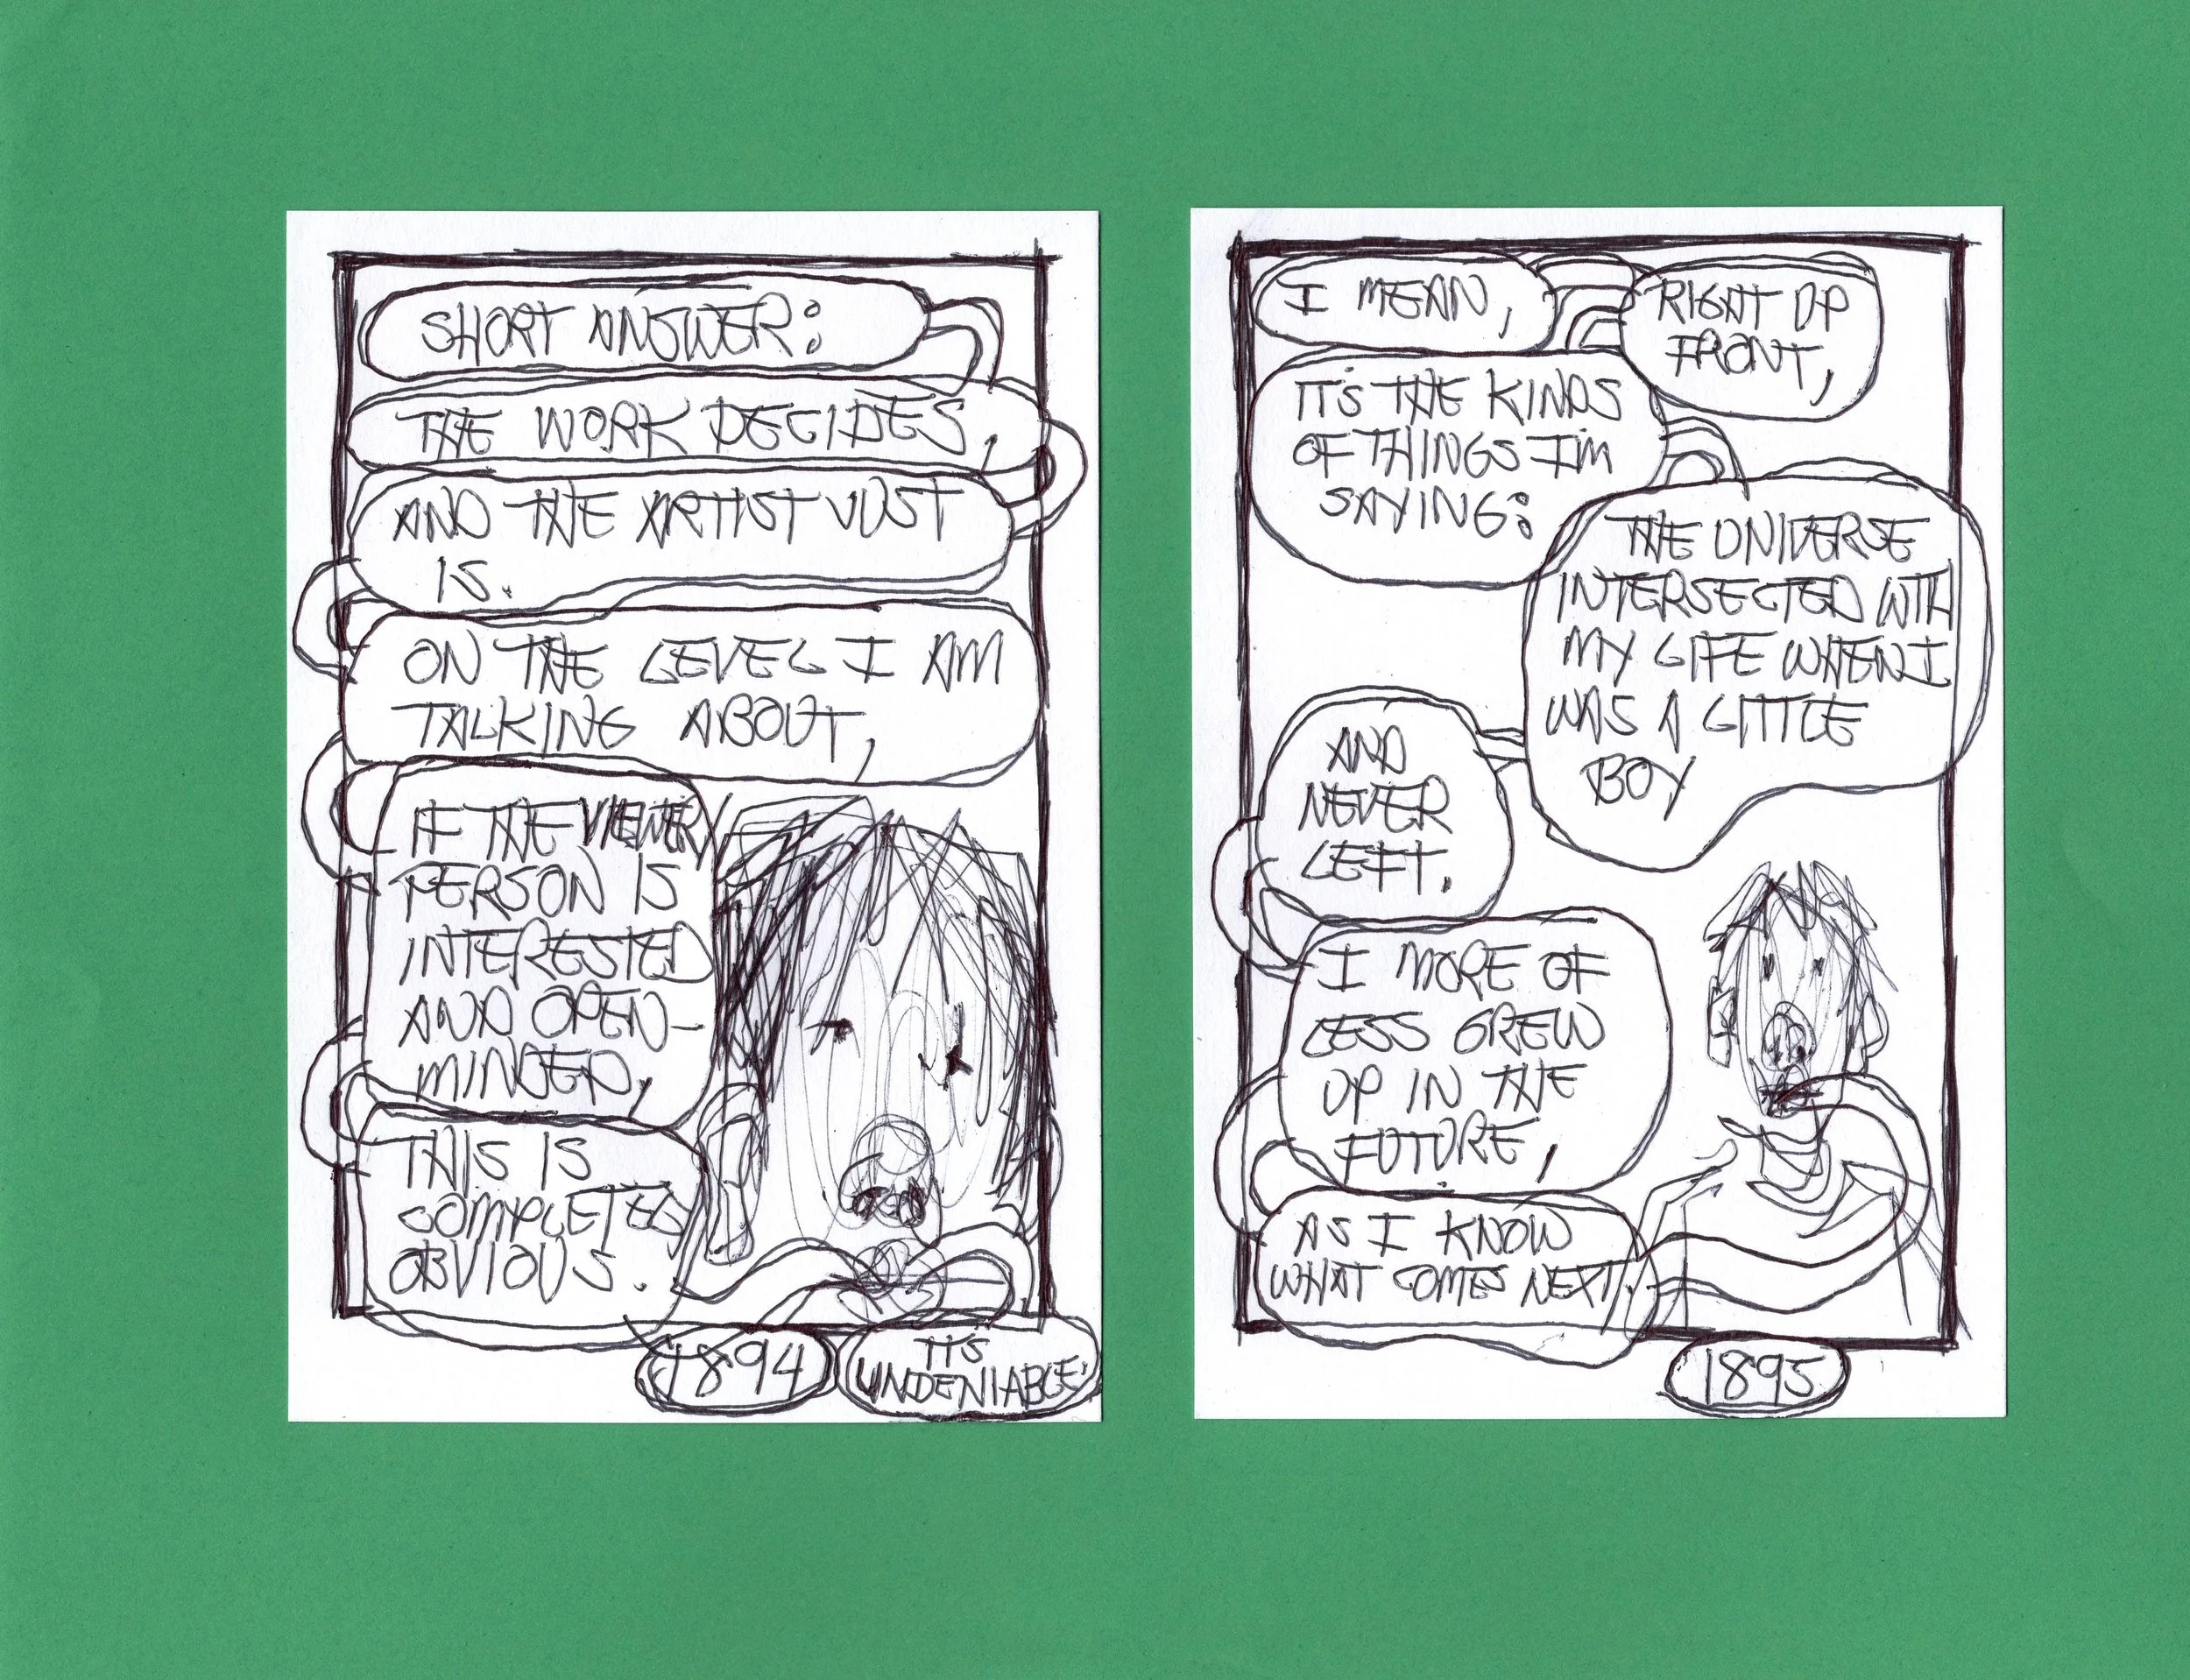 SHORT ANSWER:
THE WORK DECIDES,
AND THE ARTIST JUST
IS.
ON THE LEVEL I AM
TALKING ABOUT,
IF THE VIEWER/
PERSON IS
INTERESTED
AND OPEN-
MINDED,
THIS IS
COMPLETELY
OBVIOUS.
1894
IT'S
UNDENIABLE.
I MEAN,
RIGHT UP
FRONT,
IT'S THE KINDS
OF THINGS I'M
SAYING:
THE UNIVERSE
INTERSECTED WITH
MY LIFE WHEN I
WAS A LITTLE
BOY
AND
NEVER
LEFT.
I MORE OF
LESS GREW
UP IN THE
FUTURE,
AS I KNOW
WHAT COMES NEXT.
1895